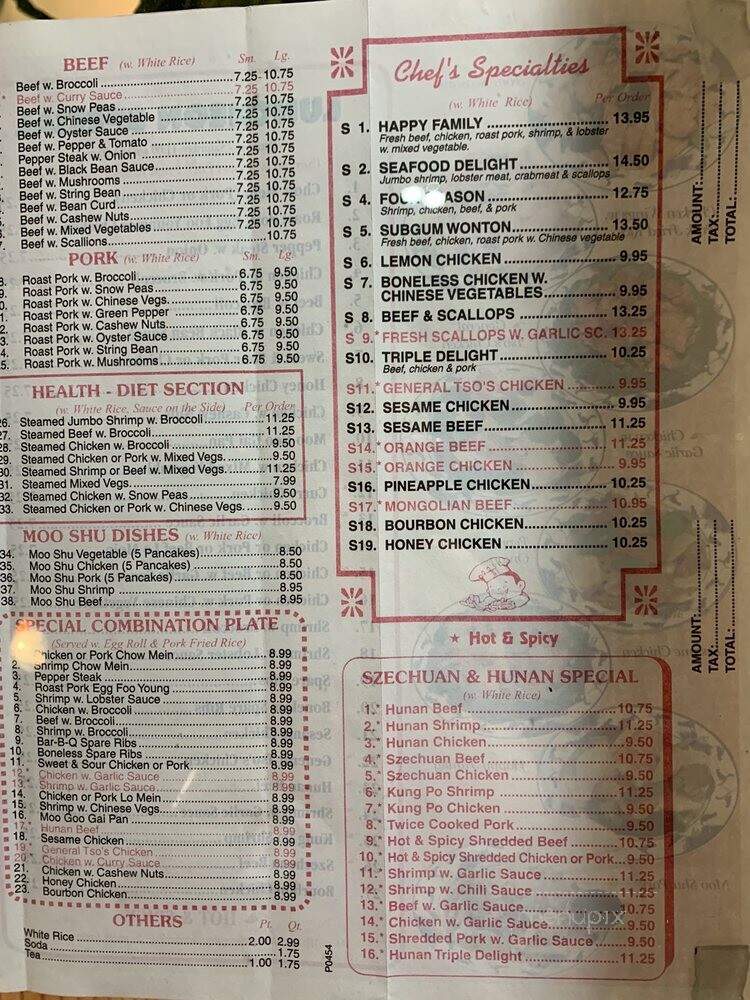 BEEF (w. White Rice) Sm. Lg.
Beef w. Broccoli 7.25 10.75
* Beef w. Curry Sauce 7.25 10.75
Beef w. Snow Peas 7.25 10.75
Beef w. Chinese Vegetable 7.25 10.75
Beef w. Oyster Sauce 7.25 10.75
Beef w. Pepper & Tomato 7.25 10.75
Pepper Steak w. Onion 7.25 10.75
Beef w. Black Bean Sauce 7.25 10.75
Beef w. Mushrooms 7.25 10.75
Beef w. String Bean 7.25 10.75
Beef w. Bean Curd 7.25 10.75
Beef w. Cashew Nuts 7.25 10.75
Beef w. Mixed Vegetables 7.25 10.75
Beef w. Scallions 10.75
PORK (w. White Rice) Sm. Lg.
Roast Pork w. Broccoli 6.75 9.50
Roast Pork w. Snow Peas 6.75 9.50
Roast Pork w. Chinese Vegs. 6.75 9.50
Roast Pork w. Green Pepper 6.75 9.50
Roast Pork w. Cashew Nuts 6.75 9.50
Roast Pork w. Oyster Sauce 6.75 9.50
Roast Pork w. String Bean 6.75 9.50
Roast Pork w. Mushrooms 6.75 9.50
HEALTH - DIET SECTION
(w. White Rice, Sauce on the Side) Per Order
26. Steamed Jumbo Shrimp w. Broccoli 11.25
27. Steamed Beef w. Broccoli 11.25
28. Steamed Chicken w. Broccoli 9.50
29. Steamed Chicken or Pork w. Mixed Vegs. 9.50
30. Steamed Shrimp or Beef w. Mixed Vegs. 11.25
31. Steamed Mixed Vegs. 7.99
32. Steamed Chicken w. Snow Peas 9.50
33. Steamed Chicken or Pork w. Chinese Vegs. 9.50
MOO SHU DISHES (w. White Rice)
34. Moo Shu Vegetable (5 Pancakes) 8.50
35. Moo Shu Chicken (5 Pancakes) 8.50
36. Moo Shu Pork (5 Pancakes) 8.50
37. Moo Shu Shrimp 8.95
38. Moo Shu Beef 8.95
SPECIAL COMBINATION PLATE
(Served w. Egg Roll & Pork Fried Rice)
Chicken or Pork Chow Mein 8.99
2. Shrimp Chow Mein 8.99
3. Pepper Steak 8.99
4. Roast Pork Egg Foo Young 8.99
5. Shrimp w. Lobster Sauce 8.99
6. Chicken w. Broccoli 8.99
7. Beef w. Broccoli 8.99
8. Shrimp w. Broccoli 8.99
9. Bar-B-Q Spare Ribs 8.99
10. Boneless Spare Ribs 8.99
11. Sweet & Sour Chicken or Pork 8.99
12.* Chicken w. Garlic Sauce 8.99
13.* Shrimp w. Garlic Sauce 8.99
14. Chicken or Pork Lo Mein 8.99
15. Shrimp w. Chinese Vegs. 8.99
16. Moo Goo Gai Pan 8.99
17.* Hunan Beef 8.99
18. Sesame Chicken 8.99
19.* General Tso's Chicken 8.99
20.* Chicken w. Curry Sauce 8.99
21. Chicken w. Cashew Nuts 8.99
22. Honey Chicken 8.99
23. Bourbon Chicken 8.99
OTHERS Pt. Qt.
White Rice 2.00 2.99
Soda 1.75
Tea 1.00 1.75
P0454
Chef's Specialties
(w. White Rice) Per Order
S 1. HAPPY FAMILY 13.95
Fresh beef, chicken, roast pork, shrimp, & lobster
w. mixed vegetable.
S 2. SEAFOOD DELIGHT 14.50
Jumbo shrimp, lobster meat, crabmeat & scallops
S 4. FOUR SEASON 12.75
Shrimp, chicken, beef, & pork
S 5. SUBGUM WONTON 13.50
Fresh beef, chicken, roast pork w. Chinese vegetable
S 6. LEMON CHICKEN 9.95
S 7. BONELESS CHICKEN W.
CHINESE VEGETABLES 9.95
S 8. BEEF & SCALLOPS 13.25
S 9.* FRESH SCALLOPS W. GARLIC SC. 13.25
S10. TRIPLE DELIGHT 10.25
Beef, chicken & pork
S11.* GENERAL TSO'S CHICKEN 9.95
S12. SESAME CHICKEN 9.95
S13. SESAME BEEF 11.25
S14.* ORANGE BEEF 11.25
S15.* ORANGE CHICKEN 9.95
S16. PINEAPPLE CHICKEN 10.25
S17.* MONGOLIAN BEEF 10.95
S18. BOURBON CHICKEN 10.25
S19. HONEY CHICKEN 10.25
★ Hot & Spicy
SZECHUAN & HUNAN SPECIAL
(w. White Rice)
1.* Hunan Beef 10.75
2.* Hunan Shrimp 11.25
3.* Hunan Chicken 9.50
4.* Szechuan Beef 10.75
5.* Szechuan Chicken 9.50
6.* Kung Po Shrimp 11.25
7.* Kung Po Chicken 9.50
8.* Twice Cooked Pork 9.50
9.* Hot & Spicy Shredded Beef 10.75
10.* Hot & Spicy Shredded Chicken or Pork 9.50
11.* Shrimp w. Garlic Sauce 11.25
12.* Shrimp w. Chili Sauce 11.25
13.* Beef w. Garlic Sauce 10.75
14.* Chicken w. Garlic Sauce 9.50
15.* Shredded Pork w. Garlic Sauce 9.50
16.* Hunan Triple Delight 11.25
AMOUNT:
TAX:
TOTAL:
AMOUNT:
TAX:
TOTAL: